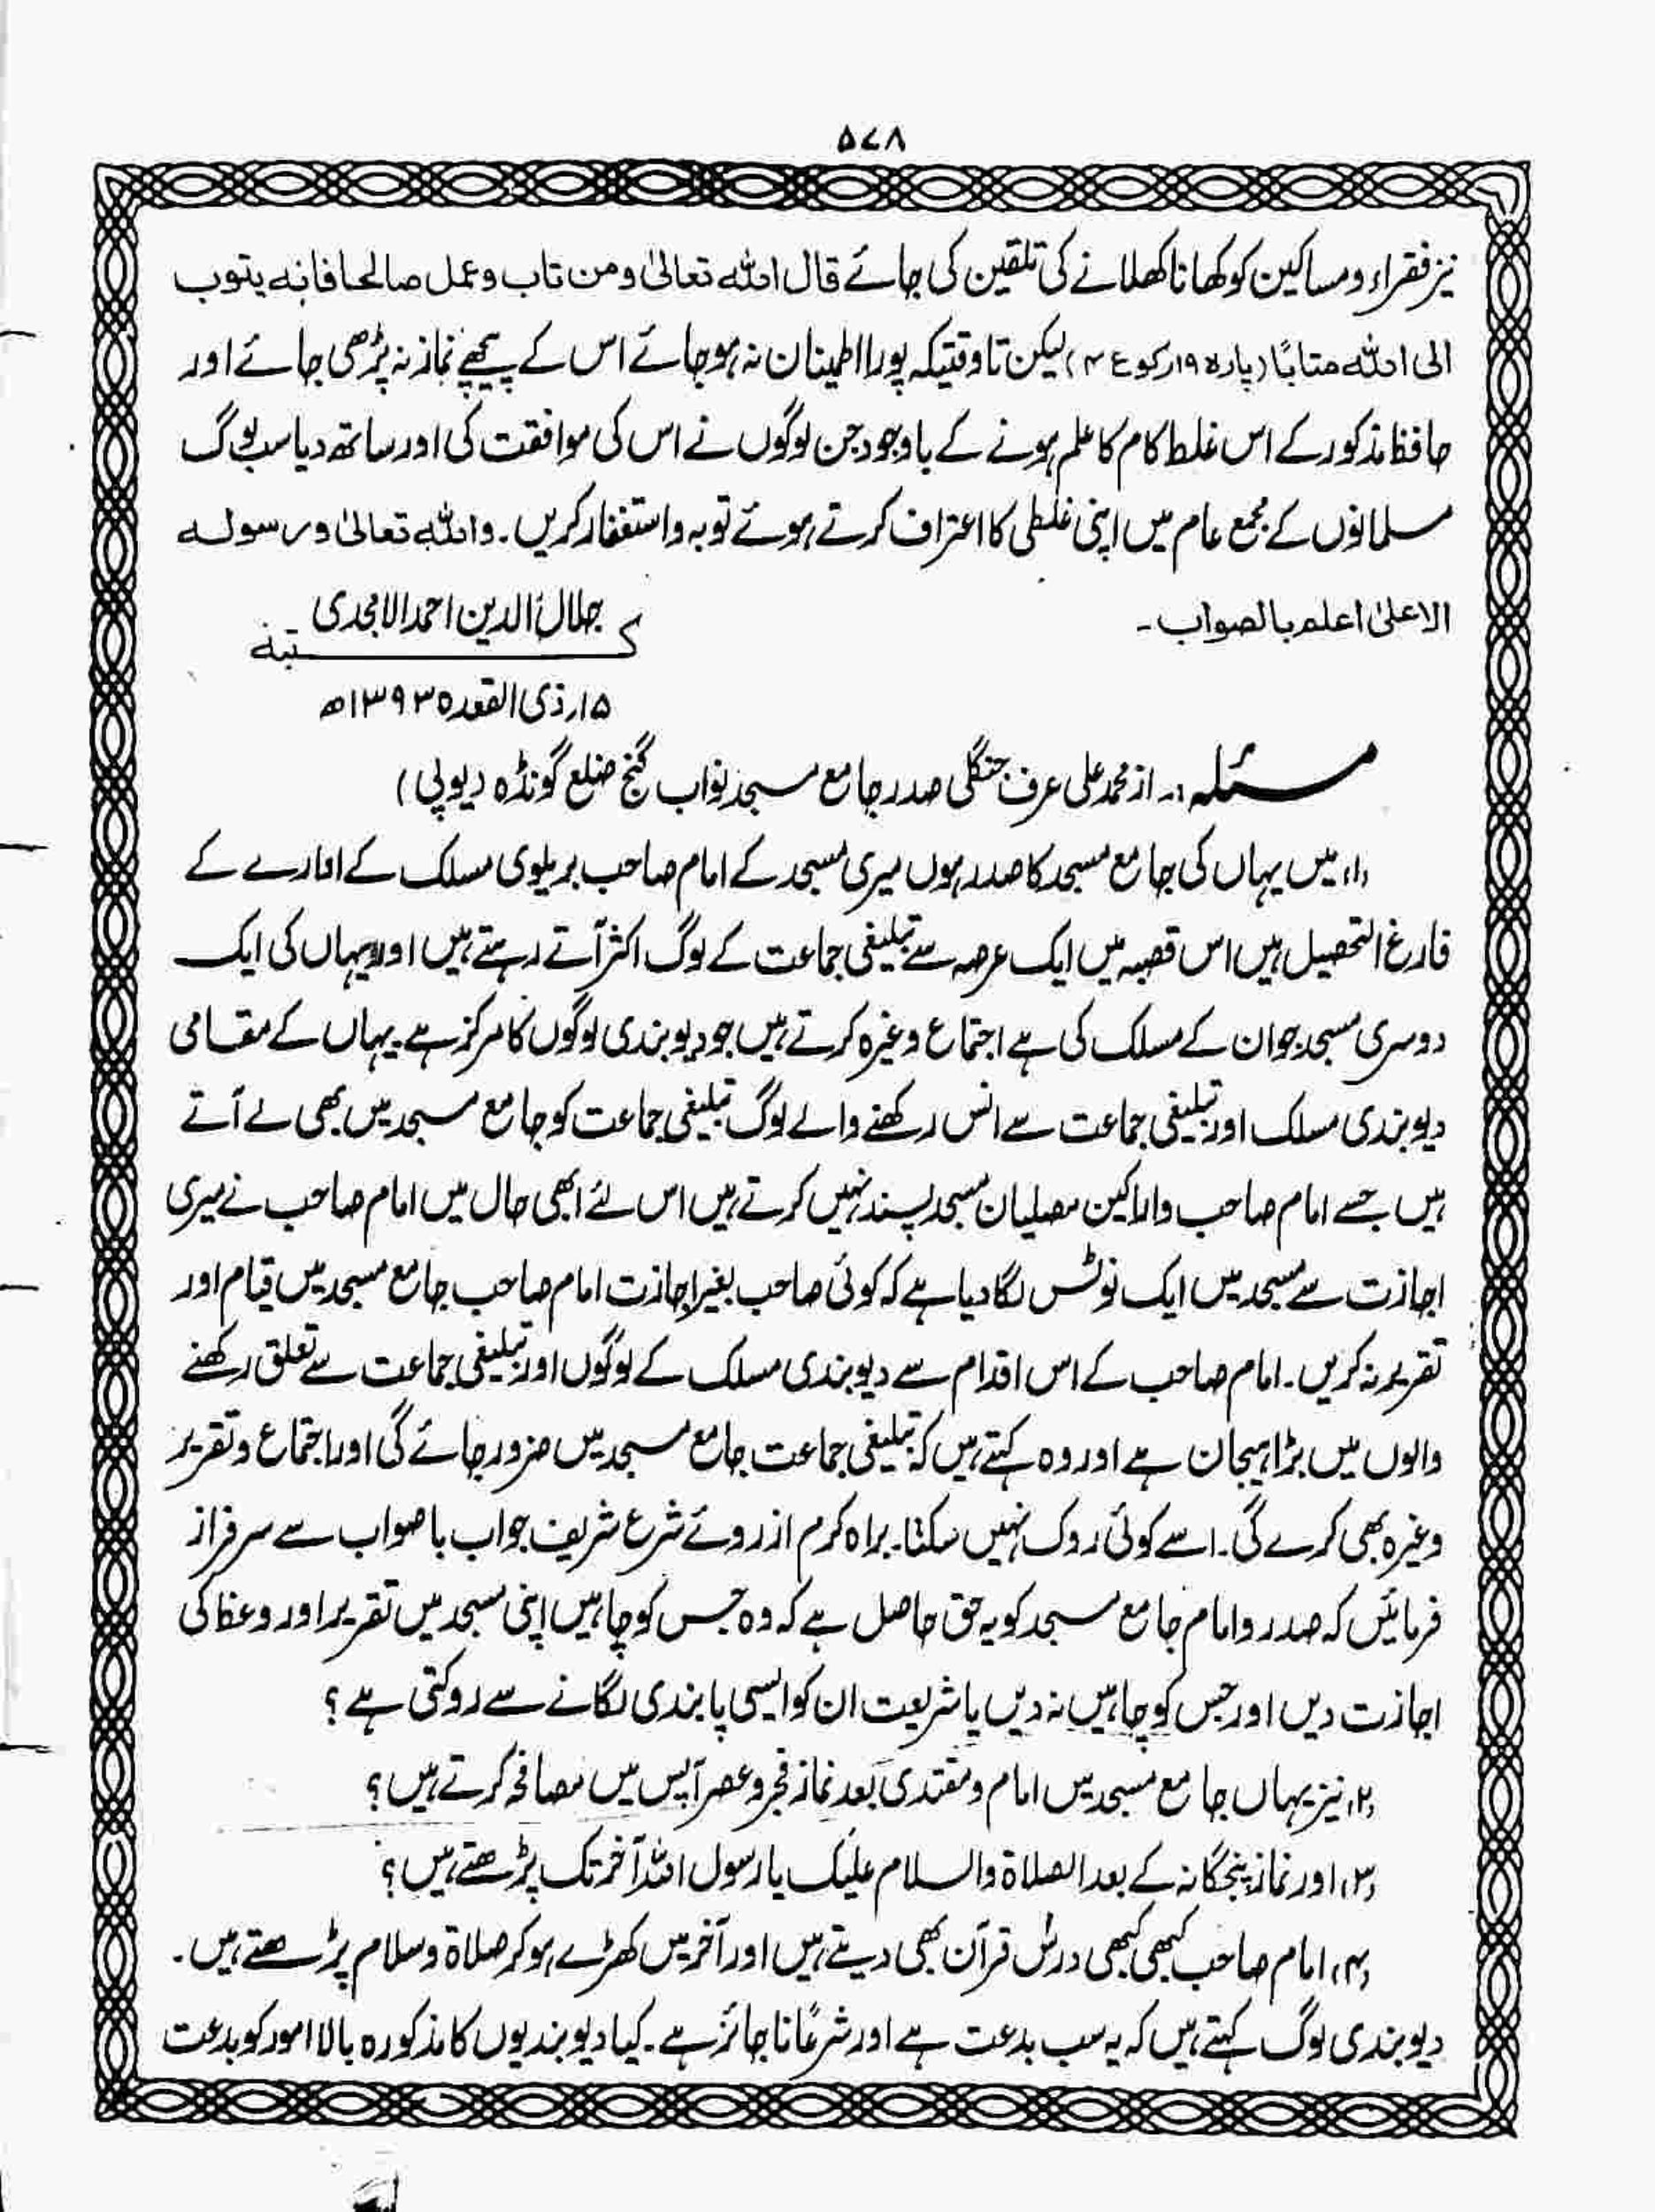 ۵۷۸
نیز فقراء و مساکین کو کھانا کھلانے کی تلقین کی جائے قال اللہ تعالیٰ ومن تاب وعمل صالحا فانہ یتوب
الی اللہ متابًا (پارہ ۱۹ رکوع ۴) لیکن تاوقتیکہ پورا اطمینان نہ ہو جائے اس کے پیچھے نماز نہ پڑھی جائے اور
حافظ مذکور کے اس غلط کام کا علم ہونے کے باوجود جن لوگوں نے اس کی موافقت کی اور ساتھ دیا سب لوگ
مسلمانوں کے مجمع عام میں اپنی غلطی کا اعتراف کرتے ہوئے توبہ و استغفار کریں۔ واللہ تعالیٰ ورسولہ
الاعلیٰ اعلم بالصواب۔
جلال الدین احمد الامجدی
کتبہ
۱۵؍ ذی القعدہ ۱۳۹۳ھ
مسئلہ:۔ از محمد علی عرف جنگلی صدر جامع مسجد نواب گنج ضلع گونڈہ (یوپی)
(۱) میں یہاں کی جامع مسجد کا صدر ہوں میری مسجد کے امام صاحب بریلوی مسلک کے ادارے کے
فارغ التحصیل ہیں اس قصبہ میں ایک عرصہ سے تبلیغی جماعت کے لوگ اکثر آتے رہتے ہیں اور یہاں کی ایک
دوسری مسجد جو ان کے مسلک کی ہے اجتماع وغیرہ کرتے ہیں جو دیوبندی لوگوں کا مرکز ہے۔ یہاں کے مقامی
دیوبندی مسلک اور تبلیغی جماعت سے انس رکھنے والے لوگ تبلیغی جماعت کو جامع مسجد میں بھی لے آتے
ہیں جسے امام صاحب و اراکین مصلیان مسجد پسند نہیں کرتے ہیں اس لئے ابھی حال میں امام صاحب نے میری
اجازت سے مسجد میں ایک نوٹس لگا دیا ہے کہ کوئی صاحب بغیر اجازت امام صاحب جامع مسجد میں قیام اور
تقریر نہ کریں۔ امام صاحب کے اس اقدام سے دیوبندی مسلک کے لوگوں اور تبلیغی جماعت سے تعلق رکھنے
والوں میں بڑا ہیجان ہے اور وہ کہتے ہیں کہ تبلیغی جماعت جامع مسجد میں ضرور جائے گی اور اجتماع و تقریر
وغیرہ بھی کرے گی۔ اسے کوئی روک نہیں سکتا۔ براہ کرم از روئے شرع شریف جواب باصواب سے سرفراز
فرمائیں کہ صدر و امام جامع مسجد کو یہ حق حاصل ہے کہ وہ جس کو چاہیں اپنی مسجد میں تقریر اور وعظ کی
اجازت دیں اور جس کو چاہیں نہ دیں یا شریعت ان کو ایسی پابندی لگانے سے روکتی ہے؟
(۲) نیز یہاں جامع مسجد میں امام و مقتدی بعد نماز فجر و عصر آپس میں مصافحہ کرتے ہیں؟
(۳) اور نماز پنجگانہ کے بعد الصلاۃ والسلام علیک یا رسول اللہ آخر تک پڑھتے ہیں؟
(۴) امام صاحب کبھی کبھی درس قرآن بھی دیتے ہیں اور آخر میں کھڑے ہو کر صلاۃ و سلام پڑھتے ہیں۔
دیوبندی لوگ کہتے ہیں کہ یہ سب بدعت ہے اور شرعًا ناجائز ہے۔ کیا دیوبندیوں کا مذکورہ بالا امور کو بدعت